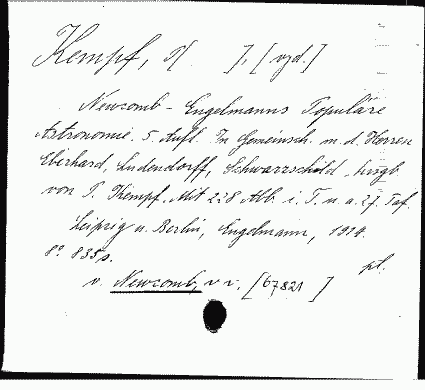 Kempf, P[ ], [vyd.]
Newcomb - Engelmanns Populäre
Astronomie. 5. Aufl. In Gemeinsch. m. d. Herren
Eberhard, Ludendorff, Schwarzschild hrsgb.
von P. Kempf. Mit 228 Abb. i. T. u. a. 27. Taf.
Leipzig u. Berlin, Engelmann, 1914.
8º. 835 s.
v. Newcomb, [67821 ]